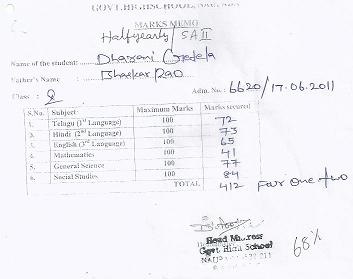 GOVT.HIGH SCHOOL,
MARKS MEMO
Halfyearly / SA II
Name of the student: Dharani
Father's Name : Bhaskar Rao
Class : 8 Adm. No : 6620/17.06.2011
S.No. Subject Maximum Marks Marks secured
1. Telugu (1st Language) 100 72
2. Hindi (2nd Language) 100 73
3. English (3rd Language) 100 65
4. Mathematics 100 41
5. General Science 100 77
6. Social Studies 100 84
TOTAL 412 Four One two
Head
Govt High School
68%